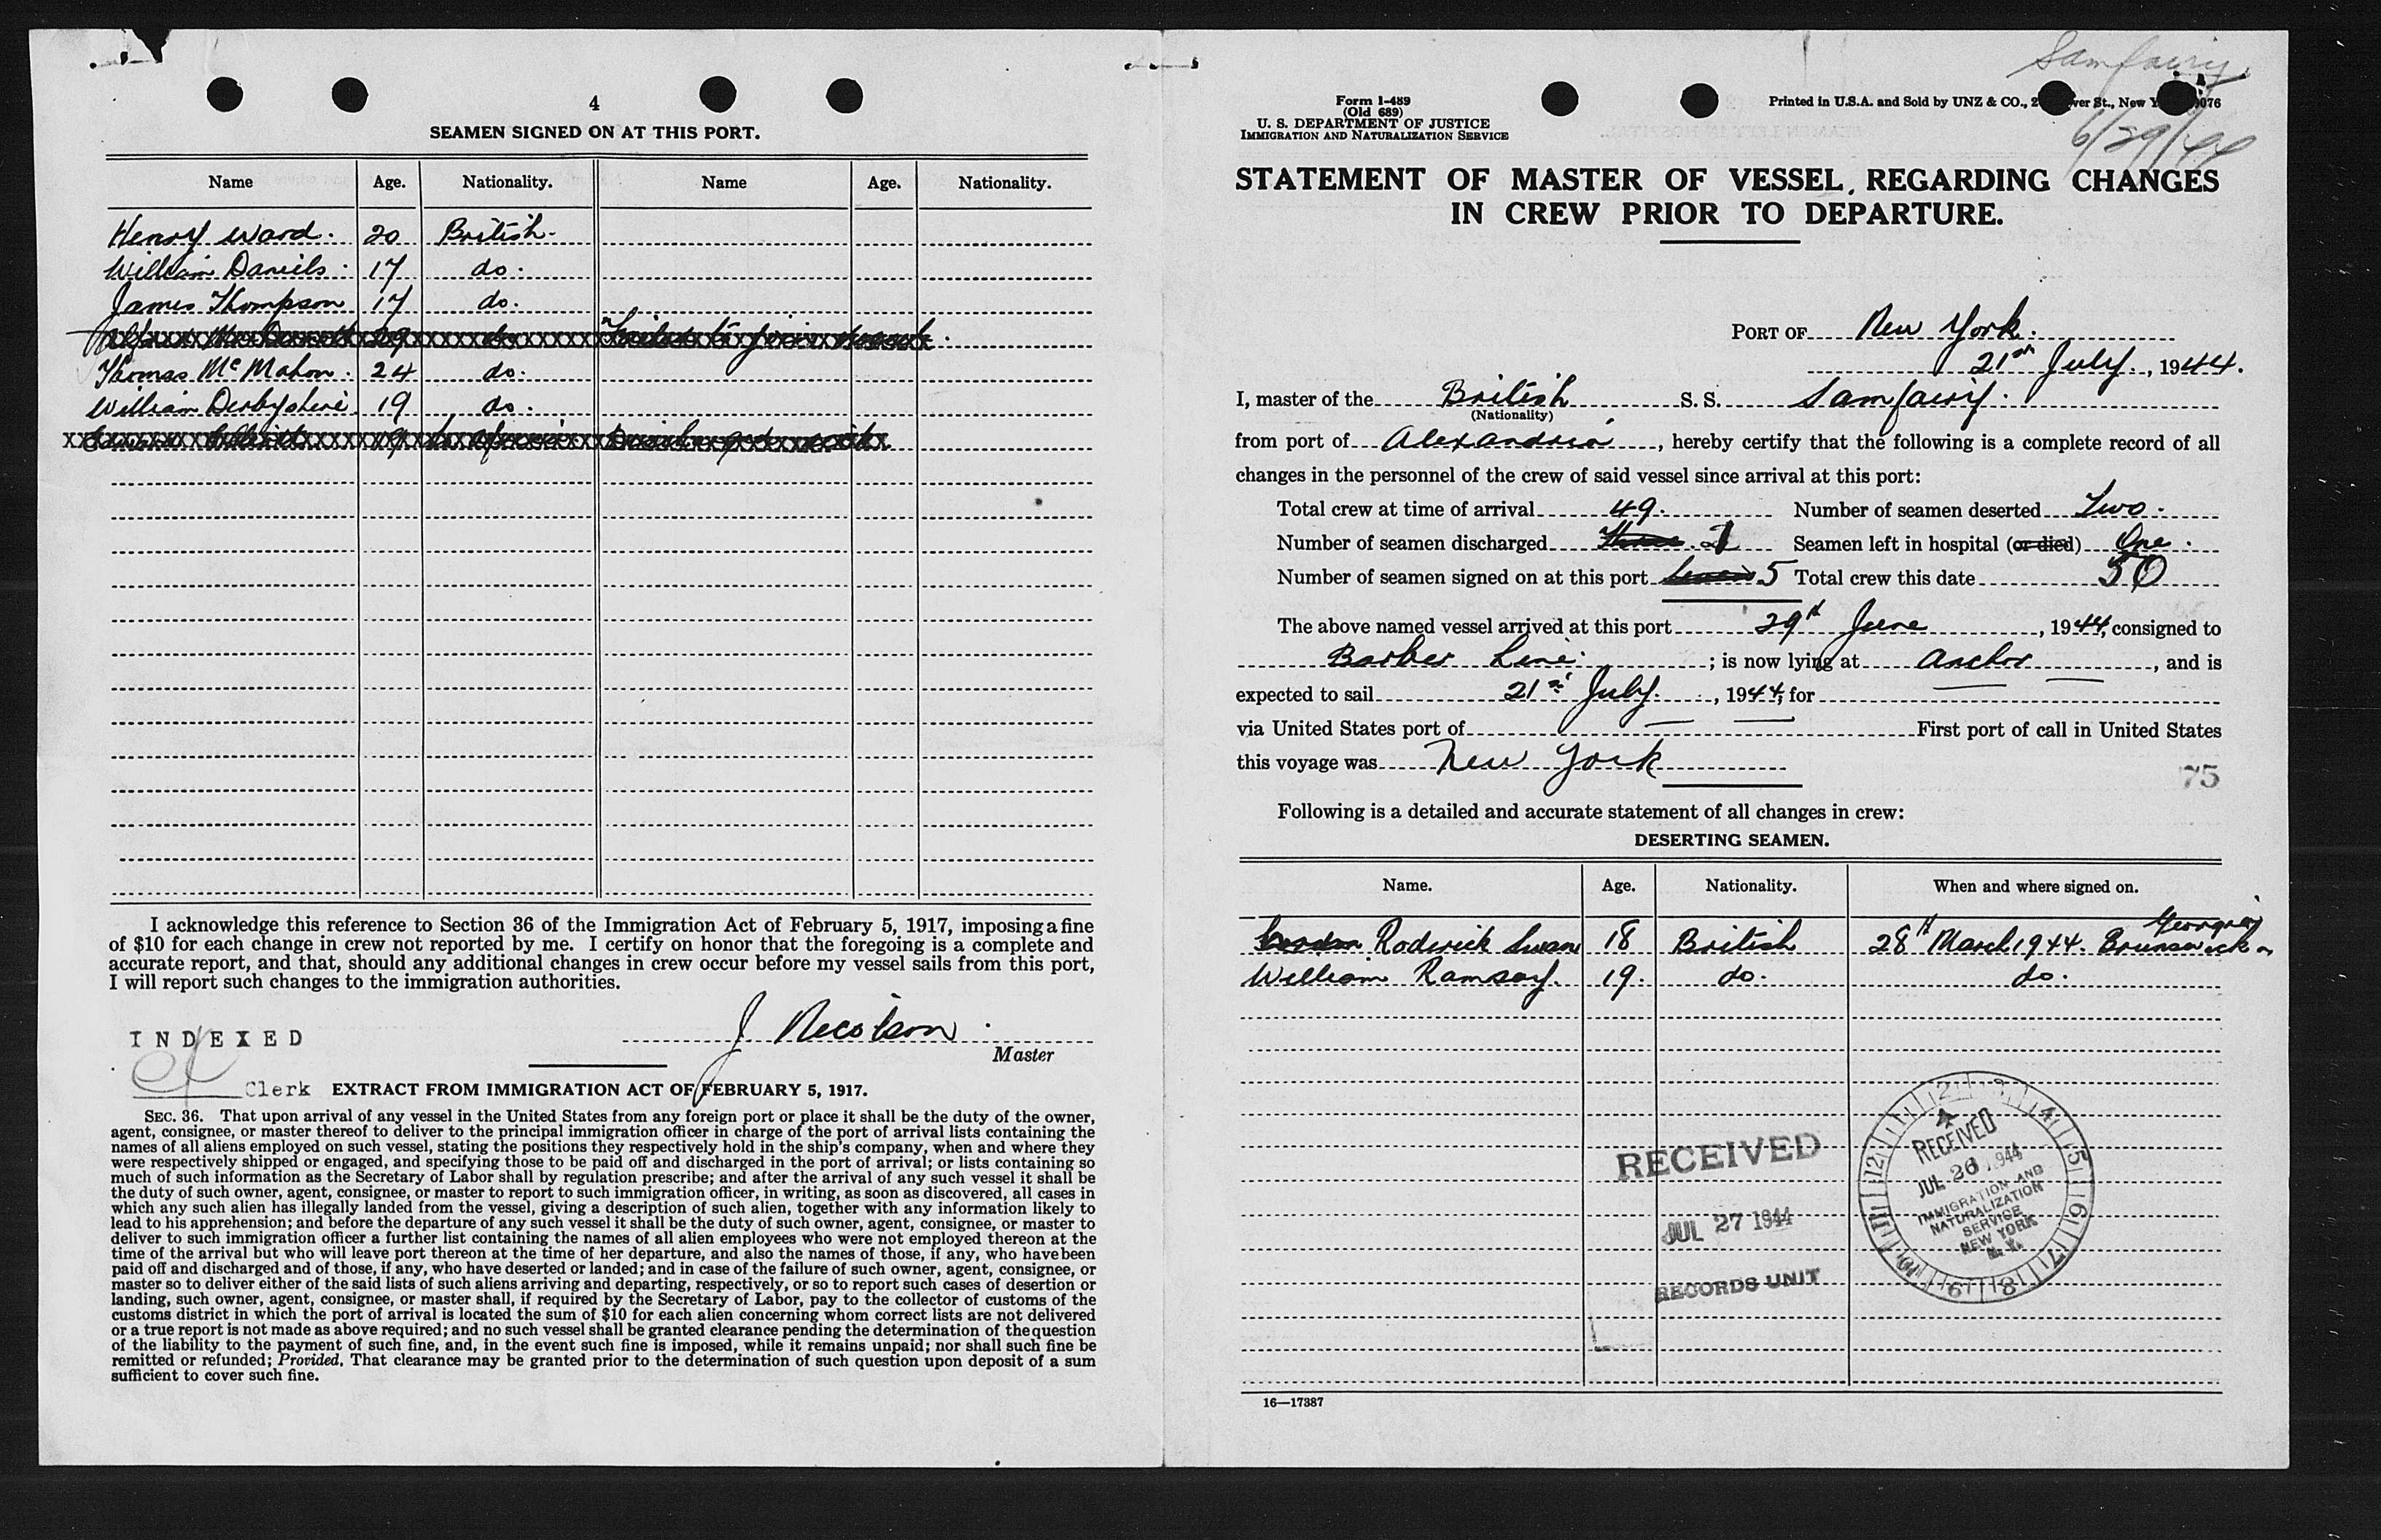 4
SEAMEN SIGNED ON AT THIS PORT.
Name Age. Nationality. Name Age. Nationality.
Henry Ward. 20 British.
William Daniels. 17 do.
James Thompson 17 do.
29 do Failed to join
Thomas McMahon. 24 do.
William Derbyshire. 19 do.
19
I acknowledge this reference to Section 36 of the Immigration Act of February 5, 1917, imposing a fine
of $10 for each change in crew not reported by me. I certify on honor that the foregoing is a complete and
accurate report, and that, should any additional changes in crew occur before my vessel sails from this port,
I will report such changes to the immigration authorities.
INDEXED
J Nicolson.
Master
Clerk EXTRACT FROM IMMIGRATION ACT OF FEBRUARY 5, 1917.
SEC. 36. That upon arrival of any vessel in the United States from any foreign port or place it shall be the duty of the owner,
agent, consignee, or master thereof to deliver to the principal immigration officer in charge of the port of arrival lists containing the
names of all aliens employed on such vessel, stating the positions they respectively hold in the ship's company, when and where they
were respectively shipped or engaged, and specifying those to be paid off and discharged in the port of arrival; or lists containing so
much of such information as the Secretary of Labor shall by regulation prescribe; and after the arrival of any such vessel it shall be
the duty of such owner, agent, consignee, or master to report to such immigration officer, in writing, as soon as discovered, all cases in
which any such alien has illegally landed from the vessel, giving a description of such alien, together with any information likely to
lead to his apprehension; and before the departure of any such vessel it shall be the duty of such owner, agent, consignee, or master to
deliver to such immigration officer a further list containing the names of all alien employees who were not employed thereon at the
time of the arrival but who will leave port thereon at the time of her departure, and also the names of those, if any, who have been
paid off and discharged and of those, if any, who have deserted or landed; and in case of the failure of such owner, agent, consignee, or
master so to deliver either of the said lists of such aliens arriving and departing, respectively, or so to report such cases of desertion or
landing, such owner, agent, consignee, or master shall, if required by the Secretary of Labor, pay to the collector of customs of the
customs district in which the port of arrival is located the sum of $10 for each alien concerning whom correct lists are not delivered
or a true report is not made as above required; and no such vessel shall be granted clearance pending the determination of the question
of the liability to the payment of such fine, and, in the event such fine is imposed, while it remains unpaid; nor shall such fine be
remitted or refunded; Provided, That clearance may be granted prior to the determination of such question upon deposit of a sum
sufficient to cover such fine.
Samfairy
6/29/44
Form I-489
(Old 689)
U. S. DEPARTMENT OF JUSTICE
IMMIGRATION AND NATURALIZATION SERVICE
Printed in U.S.A. and Sold by UNZ & CO., 2 ver St., New Y 076
STATEMENT OF MASTER OF VESSEL REGARDING CHANGES
IN CREW PRIOR TO DEPARTURE.
PORT OF New York.
21st July., 1944.
I, master of the British S. S. Samfairy.
(Nationality)
from port of Alexandria, hereby certify that the following is a complete record of all
changes in the personnel of the crew of said vessel since arrival at this port:
Total crew at time of arrival 49. Number of seamen deserted Two.
Number of seamen discharged Three. 1 Seamen left in hospital (or died) One.
Number of seamen signed on at this port Seven 5 Total crew this date 50
The above named vessel arrived at this port 29th June, 1944, consigned to
Barber Line; is now lying at Anchor, and is
expected to sail 21st July., 1944, for
via United States port of First port of call in United States
this voyage was New York
75
Following is a detailed and accurate statement of all changes in crew:
DESERTING SEAMEN.
Name. Age. Nationality. When and where signed on.
Gordon Roderick Swan 18 British 28th March 1944. Brunswick Georgia
William Ramsay. 19. do. do.
RECEIVED
JUL 27 1944
RECORDS UNIT
12 1 2 3 4 5 6 7 8 9 10 11
RECEIVED
JUL 26 1944
IMMIGRATION AND
NATURALIZATION
SERVICE
NEW YORK
N. Y.
16—17387